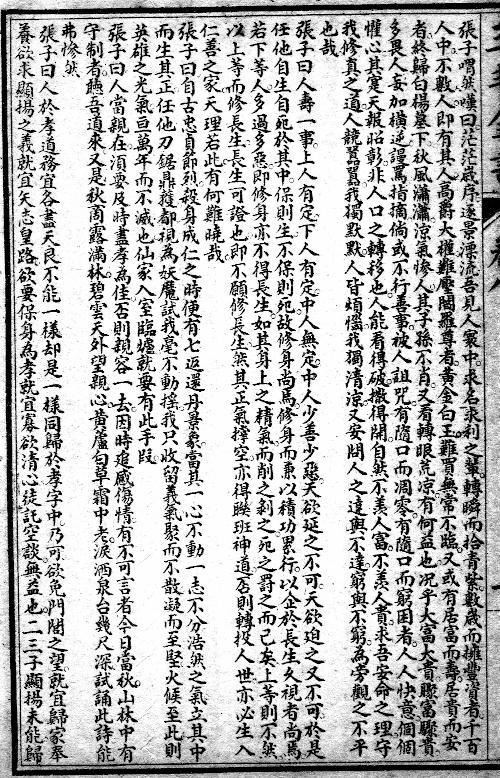 張子喟然嘆曰茫茫歲序逐景漂流吾見人叢中求名求利之輩轉瞬而拾青紫數歲而擁豐貲者千百
人中不數人即有其人高爵大權難壓閻羅尊者黃金白玉難買無常不臨又或有居富而壽居貴而安
者終歸白楊墓下秋風瀟瀟涼氣慘人其子孫不肖又看轉眼荒凉有何益也况乎大富大貴驟富驟貴
多畏人妄加橫逆謹罵指摘倘或不行善事被人詛咒有隨口而凋零有隨口而窮困者人人快意個個
懼心其寔天報昭彰非人口之轉移也人能看得破撒得開自然不羨人富不羨人貴求吾安命之理守
我修真之道人競囂囂我獨默默人皆煩惱我獨清涼又安問人之達與不達窮與不窮為旁觀之不平
也哉
張子曰人壽一事上人有定下人有定中人無定中人少善少惡天欲延之不可天欲迫之又不可於是
任他自生自死於其中保則生不保則死故修身尚焉修身而兼以積功累行以企於長生久視者尚焉
若下等人多過多惡即修身亦不得長生如其身上之精氣而削之剝之死之罰之而已矣上等則不然
以上等而修長生長生可證也即不願修長生然其正氣摶空亦得聯班神道否則轉投人世亦必生入
仁善之家天理若此有何難曉哉
張子曰自古忠貞節烈殺身成仁之時便有七返還丹景象當其一心不動一志不分浩然之氣立其中
而生其正任他刀鋸鼎鑊都視為妖魔試我毫不動搖我只收留義氣聚而不散凝而至堅火候至此則
英雄之光氣亘萬年而不滅也仙家入室臨爐就要有此手段
張子曰人當親在須要及時盡孝為佳否則親容一去因時追感傷情有不可言者今日當秋山林中有
守制者䕷吾道來又是秋商露滿林碧雲天外望親心黃蘆白草霜中老淚洒泉台幾尺深試誦此詩能
弗慘然
張子曰人於孝道務宜各盡天良不能一樣却是一樣同歸於孝字中乃可欲免門閭之望就宜歸家奉
養欲求顯揚之義就宜矢志皇路欲要保身為孝就宜寡欲清心徒託空談無益也二三子顯揚未能歸